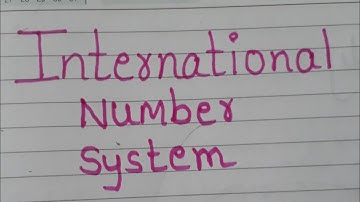 International
Number
System